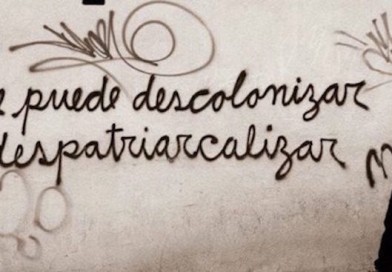 e puede descolonizar
despatriarcalizar